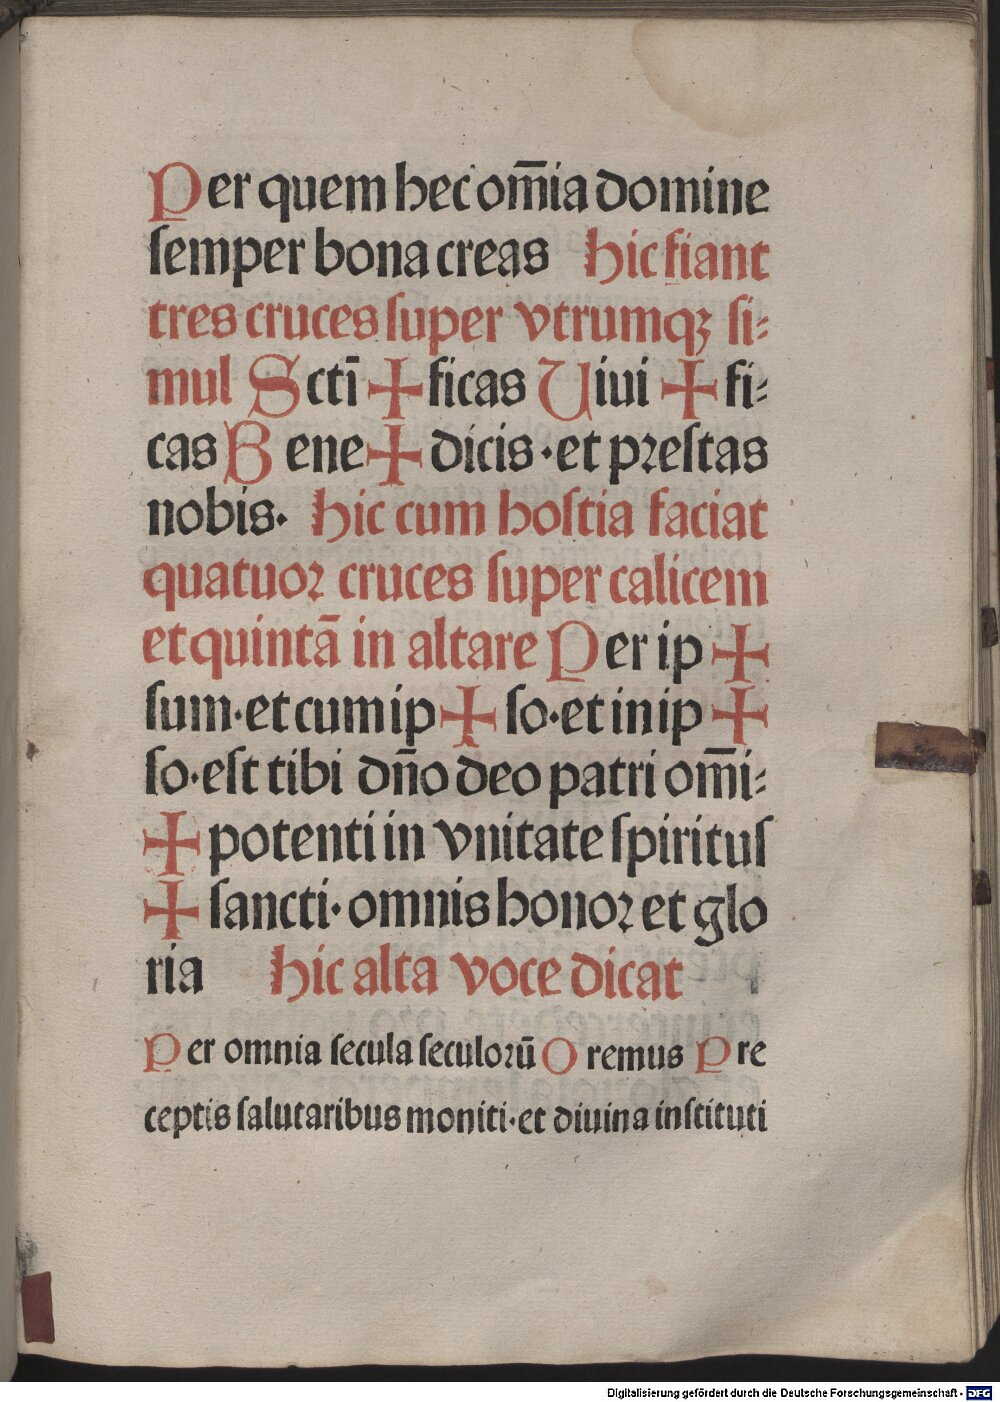 Per quem hec om̅ia domine
ſemper bona creas hic fiant
tres cruces ſuper vtrumqꝫ ſi⸗
mul Sctī ✠ ficas Uiui ✠ fi⸗
cas Bene ✠ dicis · et pꝛeſtas
nobis · hic cum hoſtia faciat
quatuoꝛ cruces ſuper calicem
et quintā in altare Per ip ✠
ſum · et cum ip ✠ ſo · et in ip ✠
ſo · eſt tibi dn̄o deo patri om̅i⸗
✠ potenti in vnitate ſpirituſ
✠ ſancti · omnis honoꝛ et glo
ria hic alta voce dicat
Per omnia ſecula ſeculoꝛū Oremus Pre
ceptis ſalutaribus moniti · et diuina inſtituti
Digitalisierung gefördert durch die Deutsche Forschungsgemeinschaft - DFG